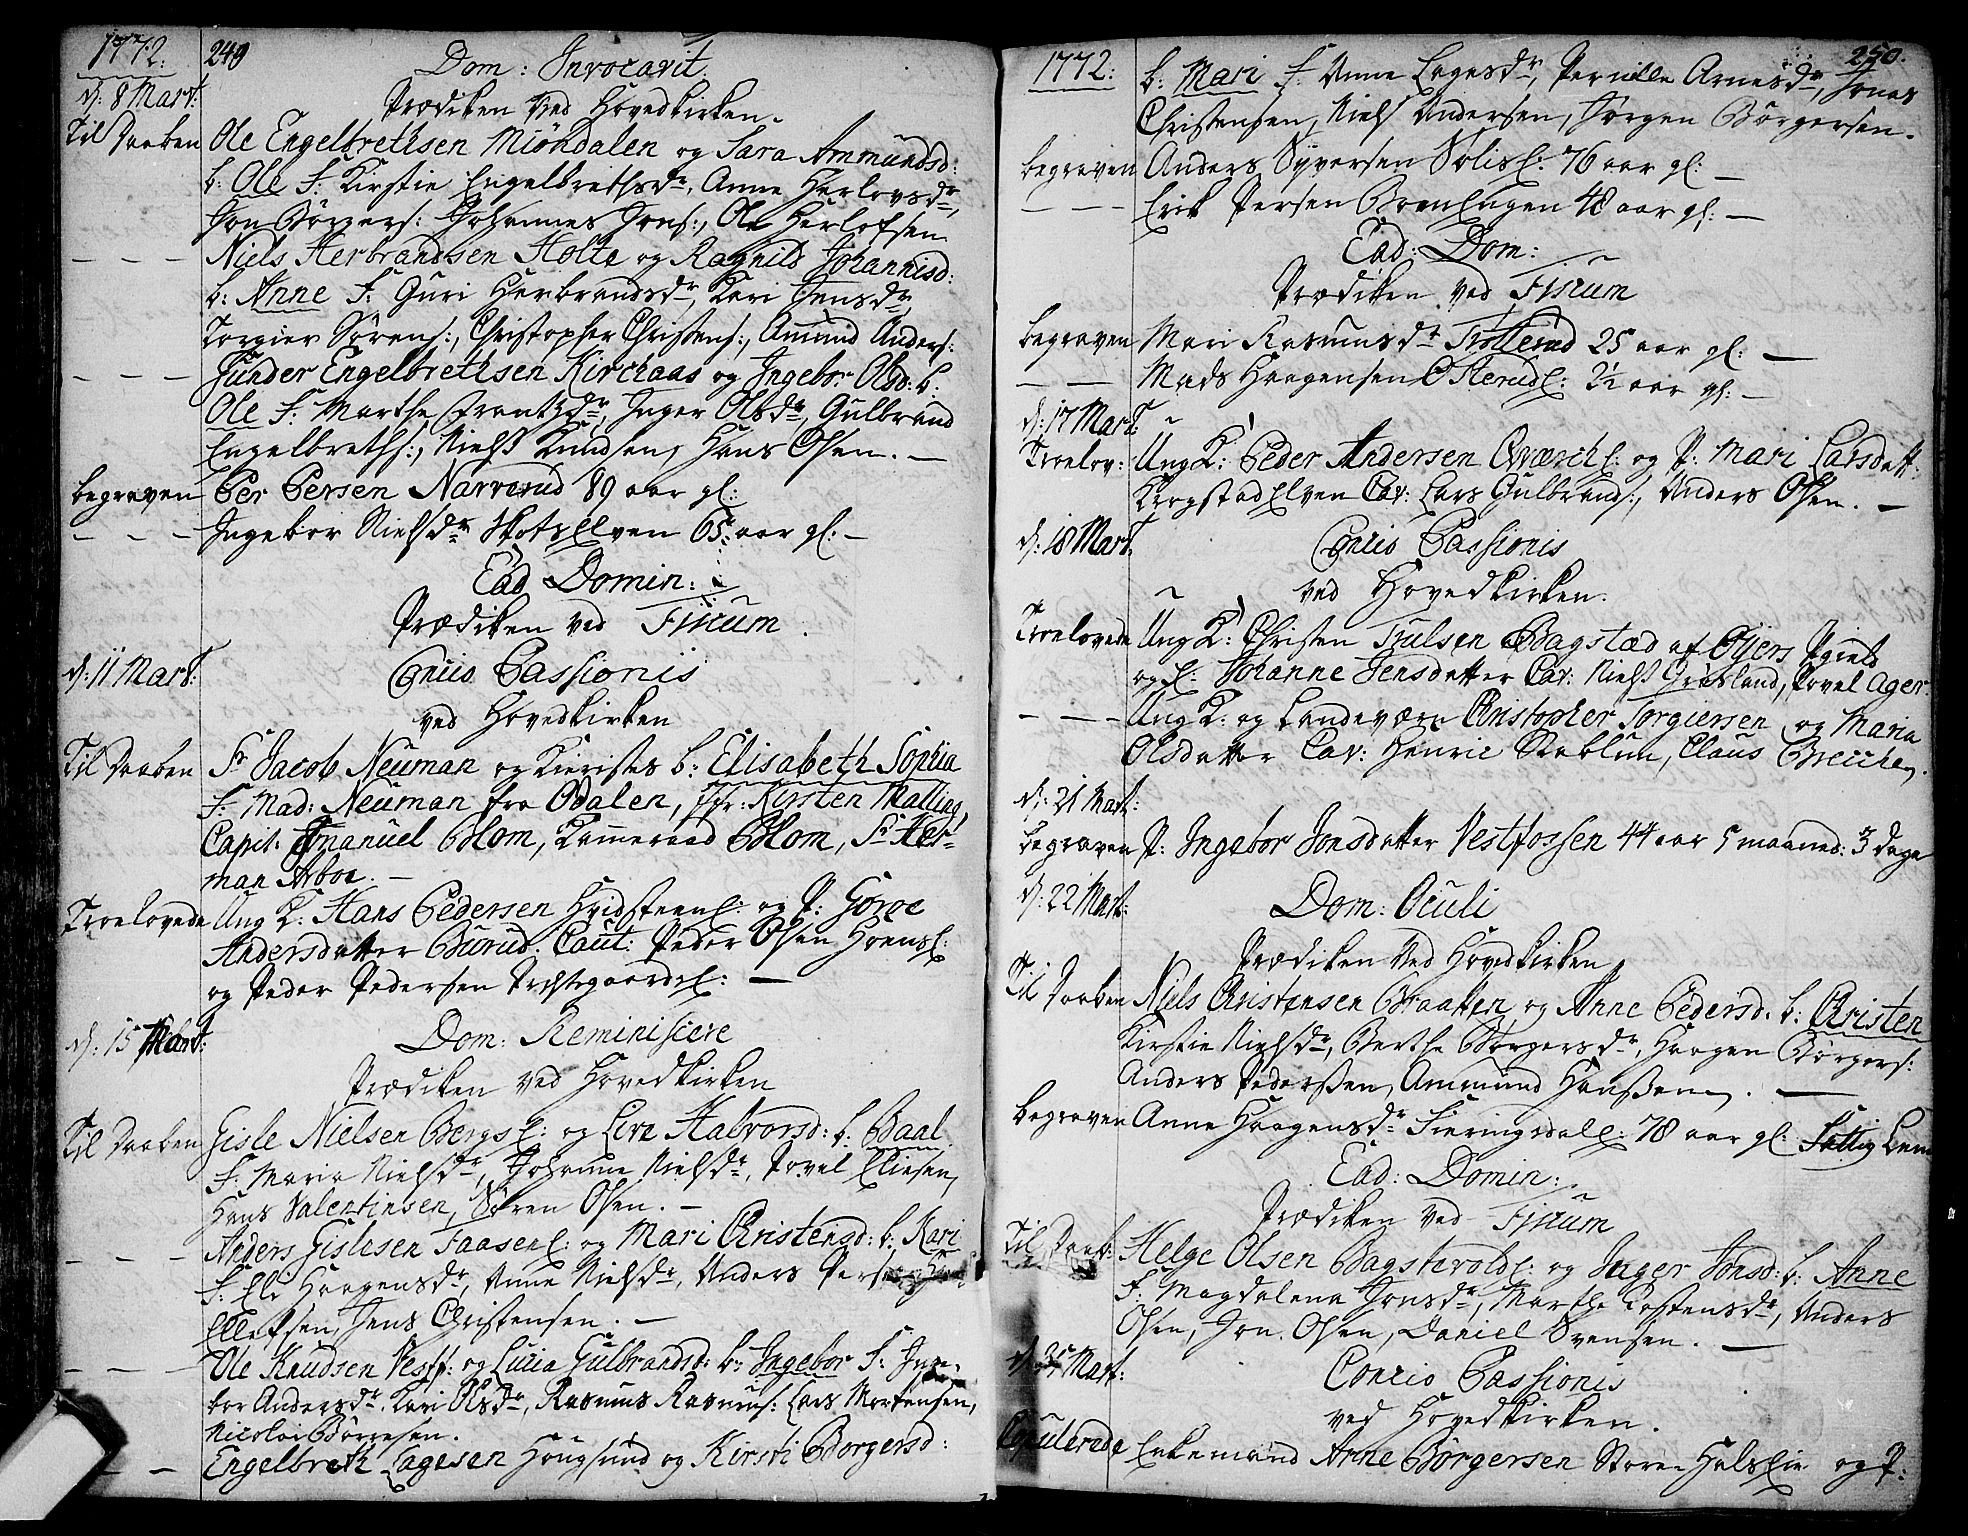 1772. 249
Dom: Invocavit.
d: 8 Mart: Prædiken ved Hovedkirken.
Til Daaben Ole Engelbrethsen Miöndalen og Sara Ammundsd:
b: Ole F: Kirstie Engelbrethsdr, Anne Herlovsdr,
Jon Börgers: Johannes Jons:, Ole Herlofsen
– – – Niels Herbrandsen Holte og Ragnild Johannisd:
b: Anne F: Guri Herbrandsdr, Kari Jensdr,
Torgier Sörens:, Christopher Christens:, Amund Anders:
– – – Gunder Engelbrethsen Kirchaas og Ingebr. Olsd: b:
Ole F: Marthe Frantzdr, Inger Olsdr, Gulbrand
Engelbreths:, Niels Knudsen, Hans Olsen. –
begraven Per Persen Narverud 89 aar gl:
– – – Ingebor Nielsdr Skotselven 65 aar gl: –
Ead Domin:
Prædiken ved Fiscum.
d: 11 Mart: Concio Passionis
ved Hovedkirken
Til Daaben Sr Jacob Neuman og Kieristes b: Elisabeth Sophia
F: Mad: Neuman fra Odalen, Jfr: Kirsten Malling,
Capit: Emanuel Blom, Kammeraad Blom, Sr Her=
man Arboe. –
Troelovede Ung K: Hans Pedersen Hvidsteen E: og P: Goroe
Andersdatter Burud. Caut: Peder Olsen Hoens E:
og Peder Pedersen Prestegaards E: –
d: 15 Mart: Dom: Reminiscere
Prædiken ved Hovedkirken
Til Daaben Gisle Nielsen Bergs E: og Live Halvorsd: b: Baal
F: Maria Nielsdr, Johanne Nielsdr, Povel Eliesen,
Hans Valentinsen, Sören Olsen. –
– – – Anders Gislesen Faasen E: og Mari Christensd: b: Kari
F: Eli Haagensdr, Anne Nielsdr, Anders Pers
Ellefsen, Jens Christensen. –
– – – Ole Knudsen Vestf: og Lucia Gulbrandsd: b: Ingebor F: Inge-
bor Andersdr. Kari Olsdr, Rasmus Rasmus: Lars Mortensen,
Nicolai Börresen.
– – Engelbreth Lagesen Hougsund og Kirsti Borgersd:
1772. 250.
b: Mari F: Anne Lagesdr, Pernille Arnesdr, Jonas
Christensen, Niels Andersen, Jörgen Börgersen.
begraven Anders Syversen Solis E: 76 aar gl: –
– – – Erik Persen Breen Engen 48 aar gl: –
Ead: Dom:
Prædiken ved Fiscum
begraven Mari Rasmusdr Trollerud 25 aar gl: –
– – Mads Haagensen Oserud E: 2½ aar gl: –
d: 17 Mart:
Troelov: Ung K: Peder Andersen Qværch E: og P: Mari Larsdatt:
Krogstad Elven Cav: Lars Gulbrands:, Anders Olsen. –
d: 18 Mart: Concio Passionis
ved Hovedkirken.
Troelovede Ung K: Christen Trulsen Bagstæd af Öyers Pgield
og E: Johanne Jensdatter Cav: Niels Grösland, Povel Ager
– – – Ung K: og Landeværn Christopher Torgiersen og Maria
Olsdatter Cav: Henric Stablum, Claus Becchen.
d: 21 Mart:
begraven P: Ingebor Jonsdatter Vestfossen 44 aar 5 maaned: 3 dage
d: 22 Mart: Dom: Oculi
Prædiken ved Hovedkirken
Til Daaben Niels Christensen Braatten og Anne Pedersd. b: Christen
Kirstie Nielsdr, Berthe Borgersdr, Haagen Börgers:
Anders Pederssen, Ammund Hanssen. –
begraven Anne Haagensdr Fieringsdal E: 78 aar gl: Fattig Lem
Ead: Domin:
Prædiken ved Fiscum
Til Daab: Helge Olsen Bagstevold E: og Inger Jonsd: b: Anne
F: Magdalena Jonsdr, Marthe Torstensdr, Anders
Olsen, Jon Olsen, Daniel Svensen. –
d: 25 Mart: Concio Passionis
ved Hovedkirken.
Copulerede Enkemand Arne Börgersen Store Hals Eie og P: